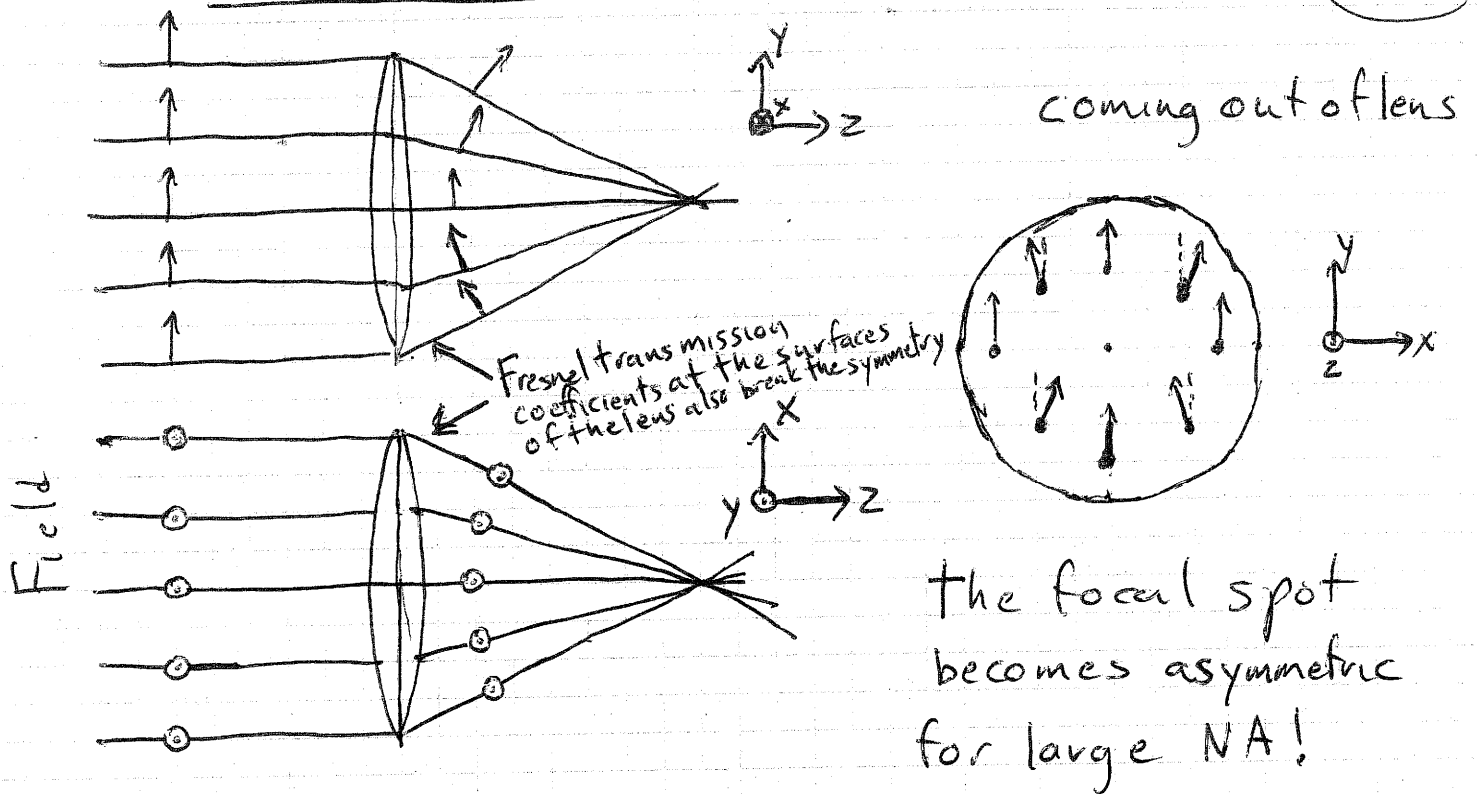 Y
x
Z
coming out of lens
y
x
z
Fresnel transmission
coefficients at the surfaces
of the lens also break the symmetry
X
Y
Z
Field
the focal spot
becomes asymmetric
for large NA!